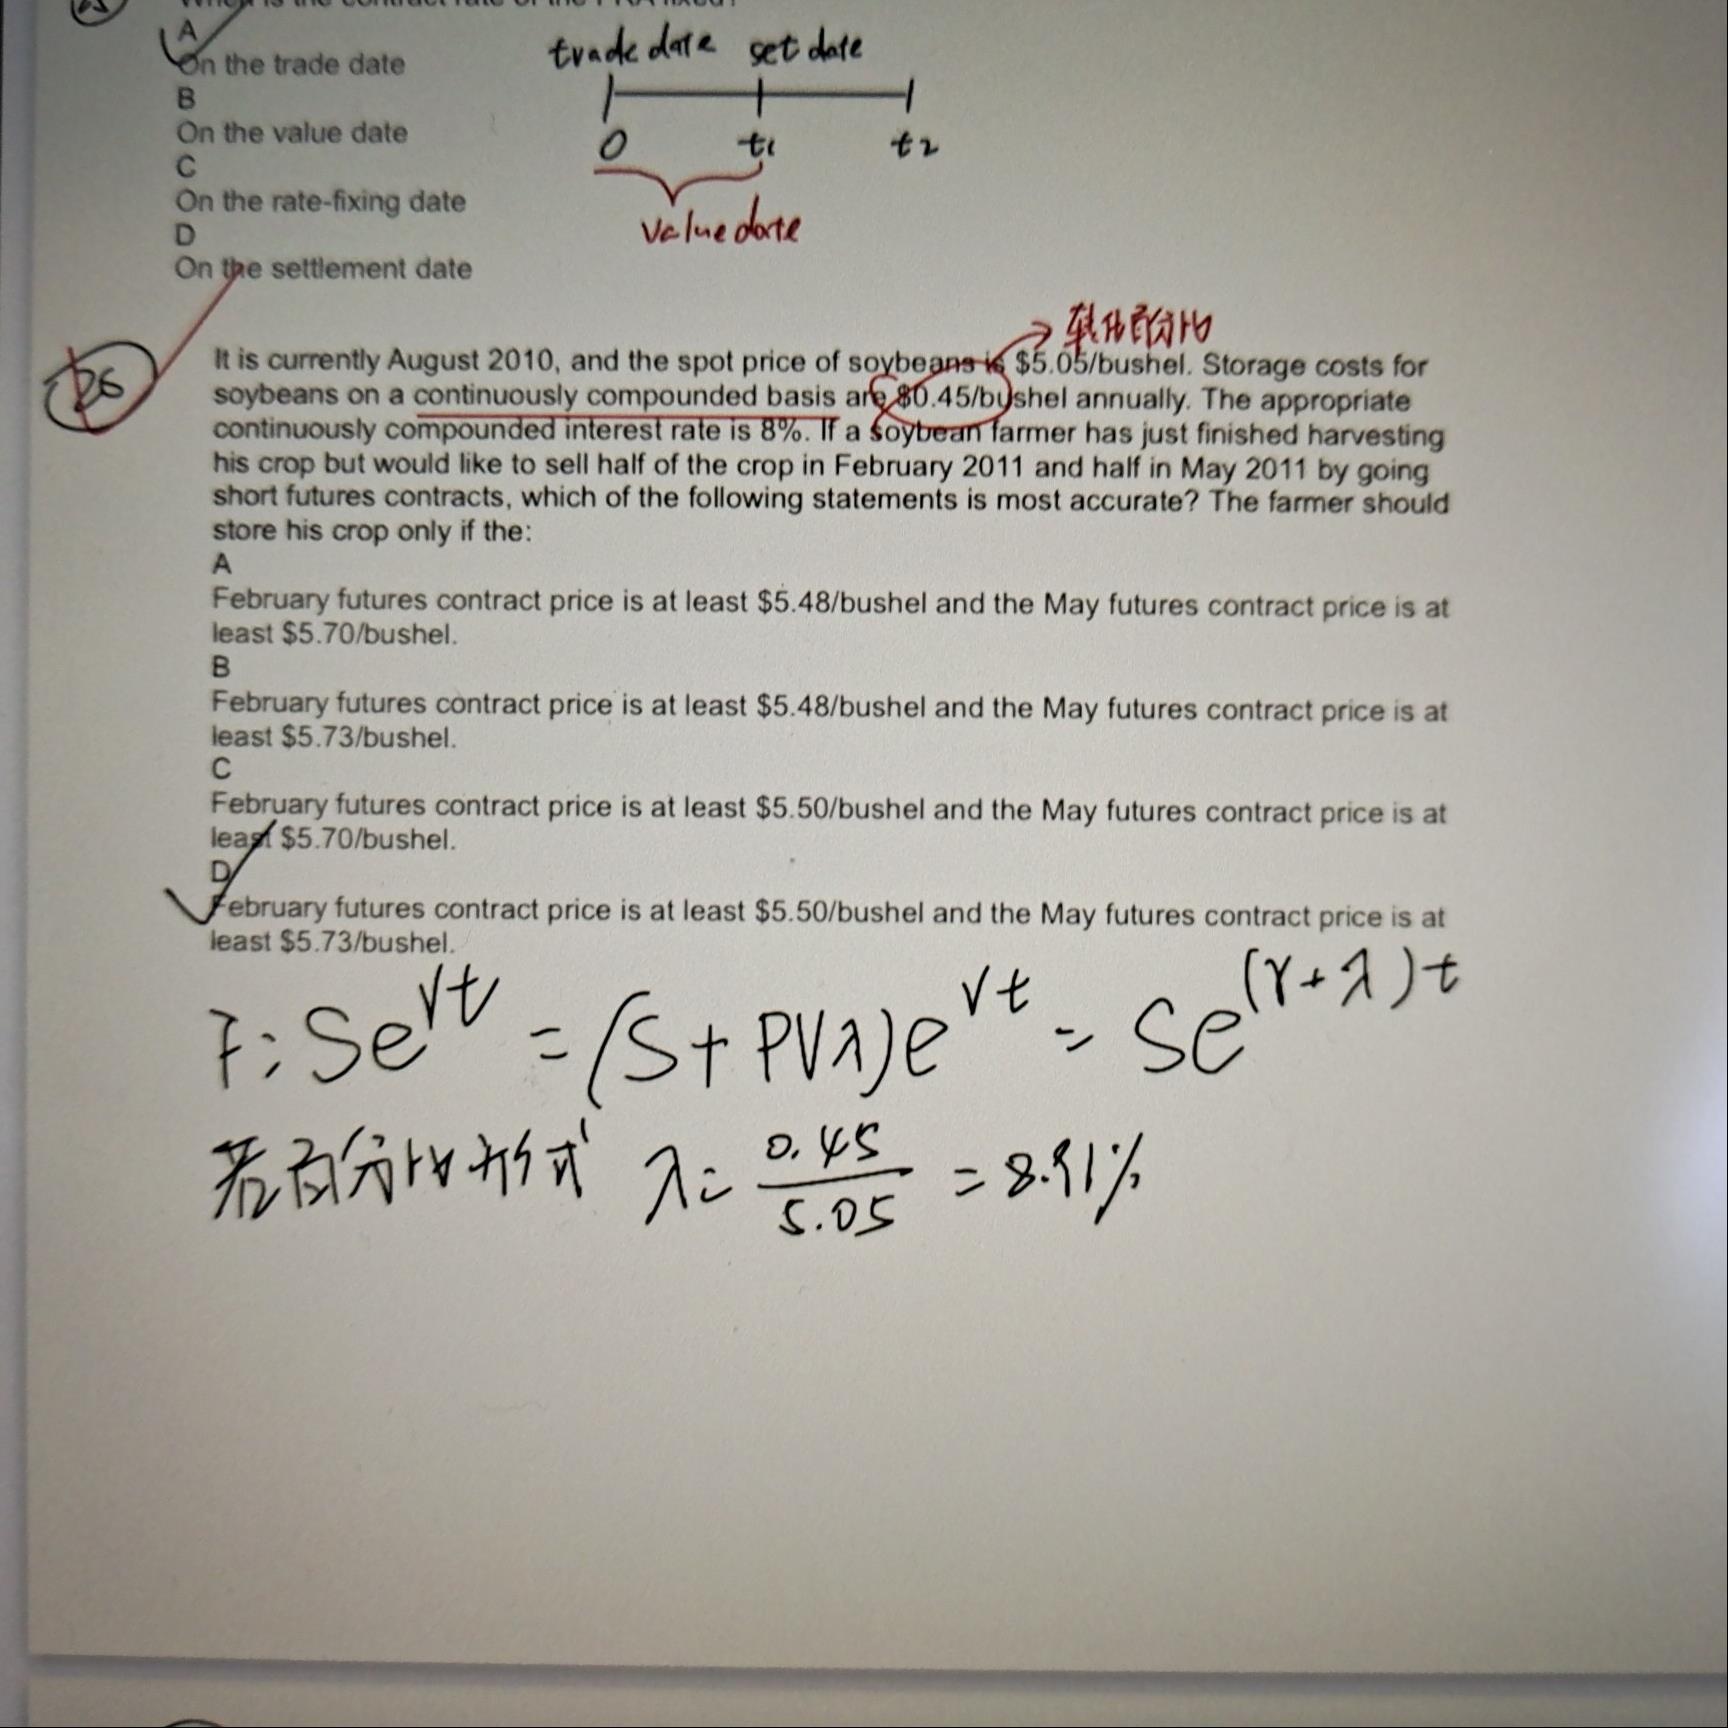 When is the contract rate of the FRA fixed?
A
On the trade date
B
On the value date
C
On the rate-fixing date
D
On the settlement date
trade date set date
0 t1 t2
value date
26
转化百分比
It is currently August 2010, and the spot price of soybeans is $5.05/bushel. Storage costs for
soybeans on a continuously compounded basis are $0.45/bushel annually. The appropriate
continuously compounded interest rate is 8%. If a soybean farmer has just finished harvesting
his crop but would like to sell half of the crop in February 2011 and half in May 2011 by going
short futures contracts, which of the following statements is most accurate? The farmer should
store his crop only if the:
A
February futures contract price is at least $5.48/bushel and the May futures contract price is at
least $5.70/bushel.
B
February futures contract price is at least $5.48/bushel and the May futures contract price is at
least $5.73/bushel.
C
February futures contract price is at least $5.50/bushel and the May futures contract price is at
least $5.70/bushel.
D
February futures contract price is at least $5.50/bushel and the May futures contract price is at
least $5.73/bushel.
F: Se^rt = (S + PVλ)e^rt = Se^(r+λ)t
若百分比形式 λ = 0.45/5.05 = 8.91%